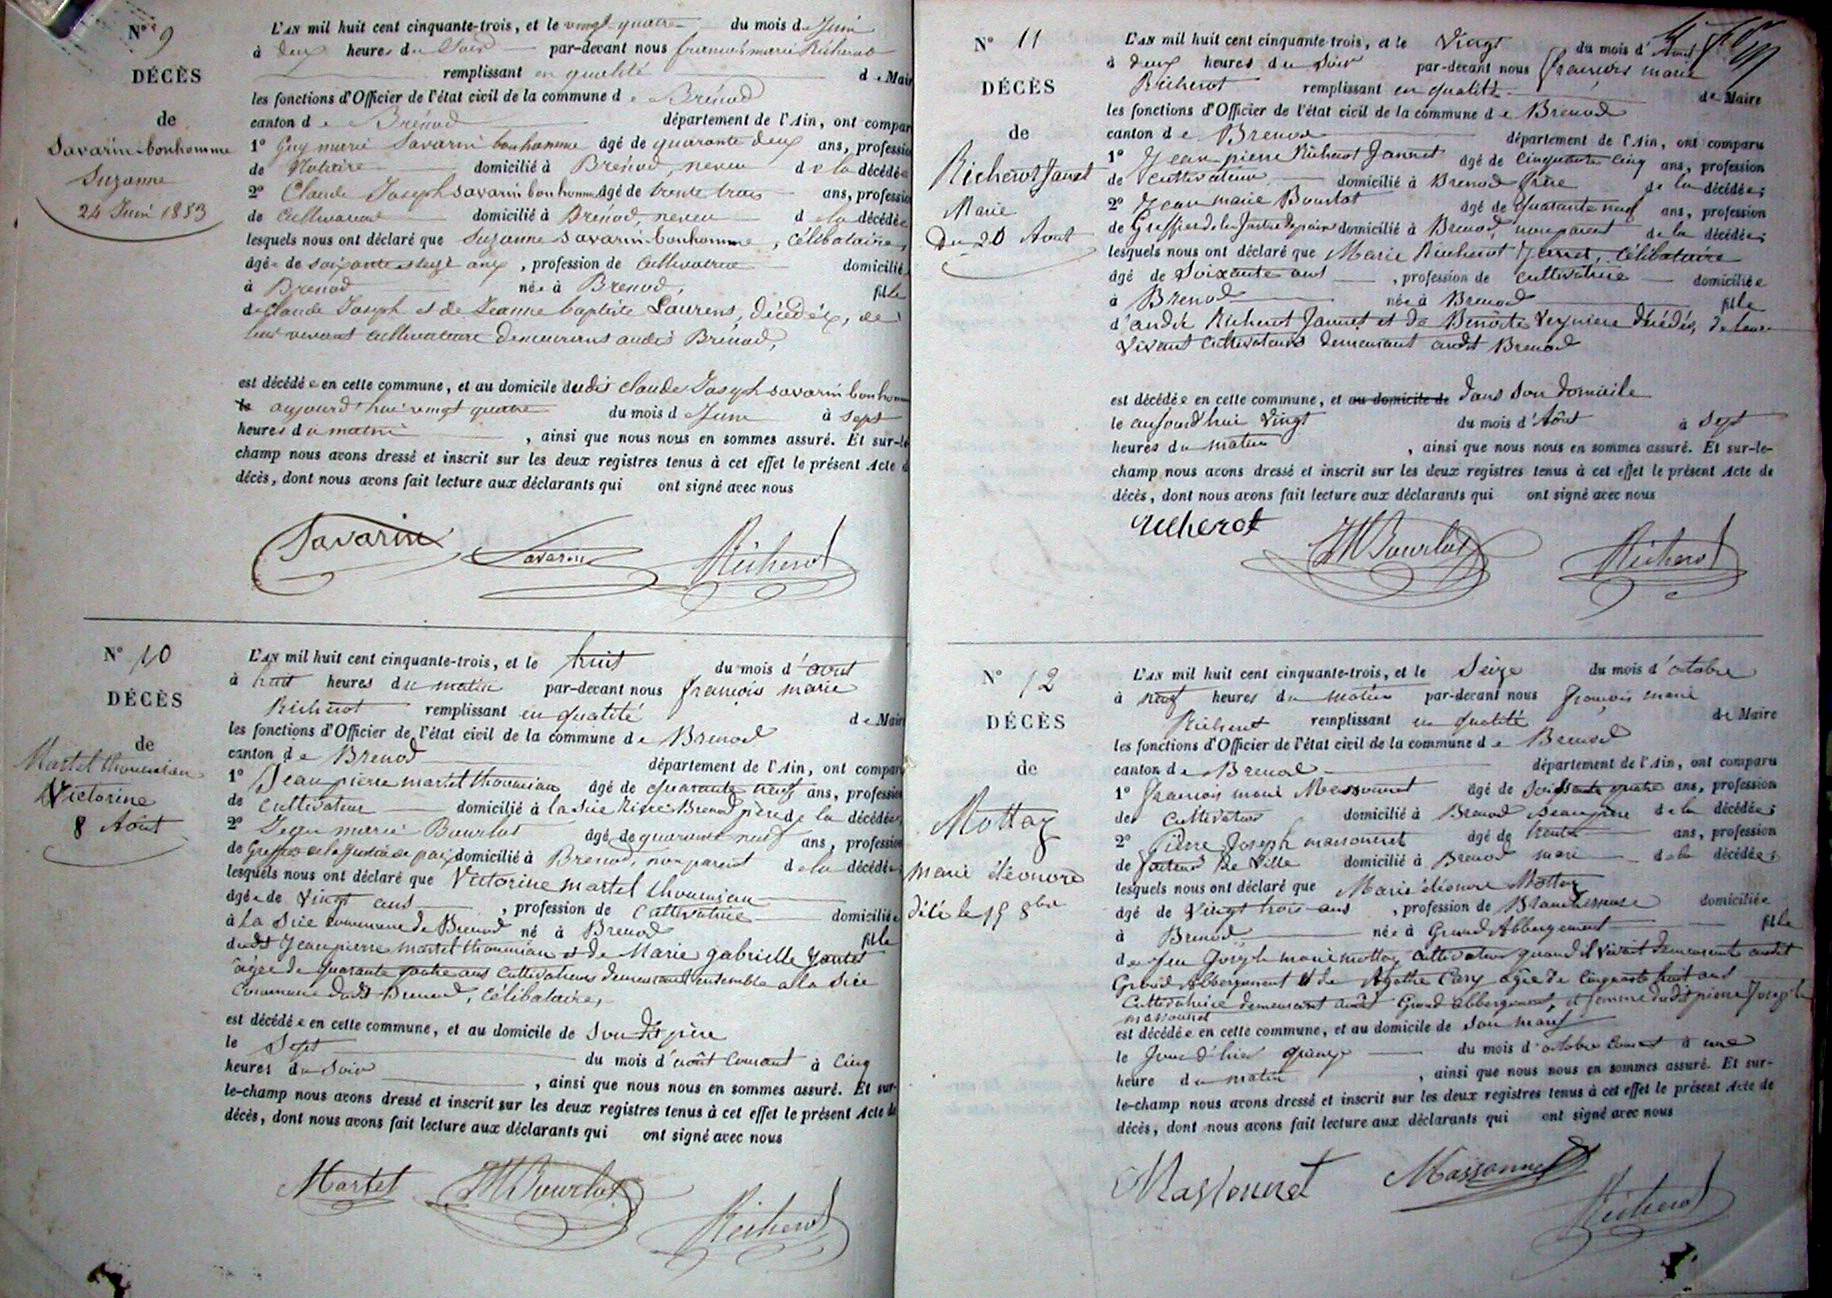 N° 9
DÉCÈS
de
Savarin-bonhomme
Suzanne
24 Juin 1853
L'AN mil huit cent cinquante-trois, et le vingt-quatre du mois de Juin
à deux heures du Soir par-devant nous françois marie Richerot
remplissant en qualité de Maire
les fonctions d'Officier de l'état civil de la commune de Brénod
canton de Brénod département de l'Ain, ont compar
1° Guy marie Savarin bonhomme âgé de quarante deux ans, professio
de Notaire domicilié à Brénod, neveu de la décédée
2° Claude Joseph Savarin bonhomme âgé de trente trois ans, professio
de cultivateur domicilié à Brénod, neveu de la décédée
lesquels nous ont déclaré que Suzanne Savarin-bonhomme, célibataire,
âgée de soixante et seize ans, profession de cultivatrice domicilié
à Brénod née à Brénod, fille
de Claude Joseph et de Jeanne baptiste Laurens, décédés, de
leur vivant cultivateurs demeurans audit Brénod,
est décédée en cette commune, et au domicile dudit claude Joseph savarin bonhom
le aujourd'hui vingt quatre du mois de Juin à sept
heures du matin, ainsi que nous nous en sommes assuré. Et sur-le
champ nous avons dressé et inscrit sur les deux registres tenus à cet effet le présent Acte d
décès, dont nous avons fait lecture aux déclarants qui ont signé avec nous
Savarin Savarin Richerot
N° 10
DÉCÈS
de
Martel thoumian
Victorine
8 Août
L'AN mil huit cent cinquante-trois, et le huit du mois d'aout
à huit heures du matin par-devant nous françois marie
Richerot remplissant en qualité de Maire
les fonctions d'Officier de l'état civil de la commune de Brenod
canton de Brenod département de l'Ain, ont compar
1° Jean pierre martel thoumian âgé de quarante neuf ans, profession
de cultivateur domicilié à la Scie Brenod père de la décédée
2° Jean marie Bourlot âgé de quarante neuf ans, profession
de Greffier de la Justice de paix domicilié à Brenod, non parent de la décédée
lesquels nous ont déclaré que Victorine martel thoumian
âgée de Vingt ans, profession de Cultivatrice domiciliée
à La Scie commune de Brenod né à Brenod fille
dudit Jean pierre martel thoumian et de Marie gabrielle Jantet
âgée de quarante quatre ans cultivateurs demeurant ensemble à la Scie
Commune dudit Brenod, Célibataire,
est décédée en cette commune, et au domicile de Son dit père
le Sept du mois d'août courant à Cinq
heures du Soir, ainsi que nous nous en sommes assuré. Et sur-
le-champ nous avons dressé et inscrit sur les deux registres tenus à cet effet le présent Acte de
décès, dont nous avons fait lecture aux déclarants qui ont signé avec nous
Martel JM Bourlot Richerot
N° 11
DÉCÈS
de
Richerot Janet
Marie
Du 20 Aout
L'AN mil huit cent cinquante-trois, et le Vingt du mois d'Aout
à deux heures du Soir par-devant nous François marie
Richerot remplissant en qualité de Maire
les fonctions d'Officier de l'état civil de la commune de Brenod
canton de Brenod département de l'Ain, ont comparu
1° Jean pierre Richerot Jannet âgé de Cinquante cinq ans, profession
de Cultivateur domicilié à Brenod frère de la décédée;
2° Jean marie Bourlot âgé de quarante neuf ans, profession
de Greffier de la Justice de paix domicilié à Brenod, non parent de la décédée;
lesquels nous ont déclaré que Marie Richerot Jannet, Célibataire
âgé de Soixante ans, profession de Cultivatrice domiciliée
à Brenod née à Brenod fille
d'andré Richerot Jannet et de Benoite Veyniere décédés, de leur
Vivant cultivateurs demeurant audit Brenod
est décédée en cette commune, et au domicile de dans Son Domicile
le aujourd'hui Vingt du mois d'Août à Sept
heures du matin, ainsi que nous nous en sommes assuré. Et sur-le-
champ nous avons dressé et inscrit sur les deux registres tenus à cet effet le présent Acte de
décès, dont nous avons fait lecture aux déclarants qui ont signé avec nous
richerot JM Bourlot Richerot
N° 12
DÉCÈS
de
Mottaz
marie éléonore
décé le 15 8bre
L'AN mil huit cent cinquante-trois, et le Seize du mois d'octobre
à neuf heures du matin par-devant nous françois marie
Richerot remplissant en qualité de Maire
les fonctions d'Officier de l'état civil de la commune de Brenod
canton de Brenod département de l'Ain, ont comparu
1° francois marie Massonnet âgé de Soixante quatre ans, profession
de Cultivateur domicilié à Brenod beau père de la décédée;
2° Pierre Joseph massonnet âgé de trente ans, profession
de facteur de Ville domicilié à Brenod mari de la décédée;
lesquels nous ont déclaré que Marie éléonore Mottaz
âgé de Vingt trois ans, profession de Blanchisseuse domiciliée
à Brenod née à Grand Abbergement fille
de feu Joseph marie mottaz cultivateur quand il vivait demeurant audit
Grand Abbergement & de Agathe Cary âgée de Cinquante huit ans
Cultivatrice demeurant audit Grand abbergement, et femme dudit pierre Joseph
massonnet
est décédée en cette commune, et au domicile de Son mari
le Jour d'hier quinze du mois d'octobre courant à une
heure du matin, ainsi que nous nous en sommes assuré. Et sur-
le-champ nous avons dressé et inscrit sur les deux registres tenus à cet effet le présent Acte de
décès, dont nous avons fait lecture aux déclarants qui ont signé avec nous
Massonnet Massonnet Richerot